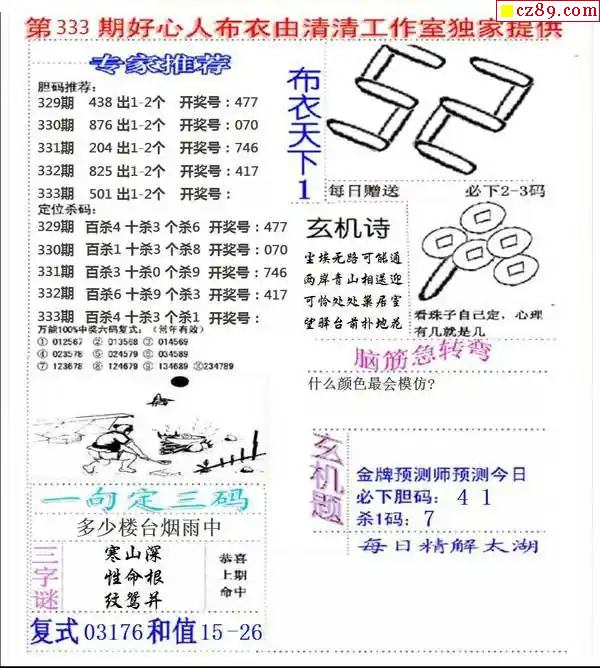 cz89.com
第333期好心人布衣由清清工作室独家提供
专家推荐
胆码推荐:
329期 438出1-2个 开奖号:477
330期 876出1-2个 开奖号:070
331期 204出1-2个 开奖号:746
332期 825出1-2个 开奖号:417
333期 501出1-2个 开奖号:
定位杀码:
329期 百杀4 十杀3 个杀6 开奖号:477
330期 百杀1 十杀3 个杀8 开奖号:070
331期 百杀3 十杀0 个杀9 开奖号:746
332期 百杀6 十杀9 个杀3 开奖号:417
333期 百杀4 十杀3 个杀1 开奖号:
万能100%中奖六码复式:(常年有效)
① 012567 ② 013568 ③ 014569
④ 023578 ⑤ 024579 ⑥ 034589
⑦ 123678 ⑧ 124679 ⑨ 134689 ⑩234789
布衣天下1
52
每日赠送 必下2-3码
玄机诗
尘埃无路可能通
两岸青山相送迎
可怜处处巢居室
望驿台前朴地花
看珠子自己定,心理
有几就是几
脑筋急转弯
什么颜色最会模仿?
玄机题
金牌预测师预测今日
必下胆码: 4 1
杀1码: 7
每日精解太湖
一句定三码
多少楼台烟雨中
三字谜
寒山深
性命根
纹鸳并
恭喜
上期
命中
复式03176和值15-26